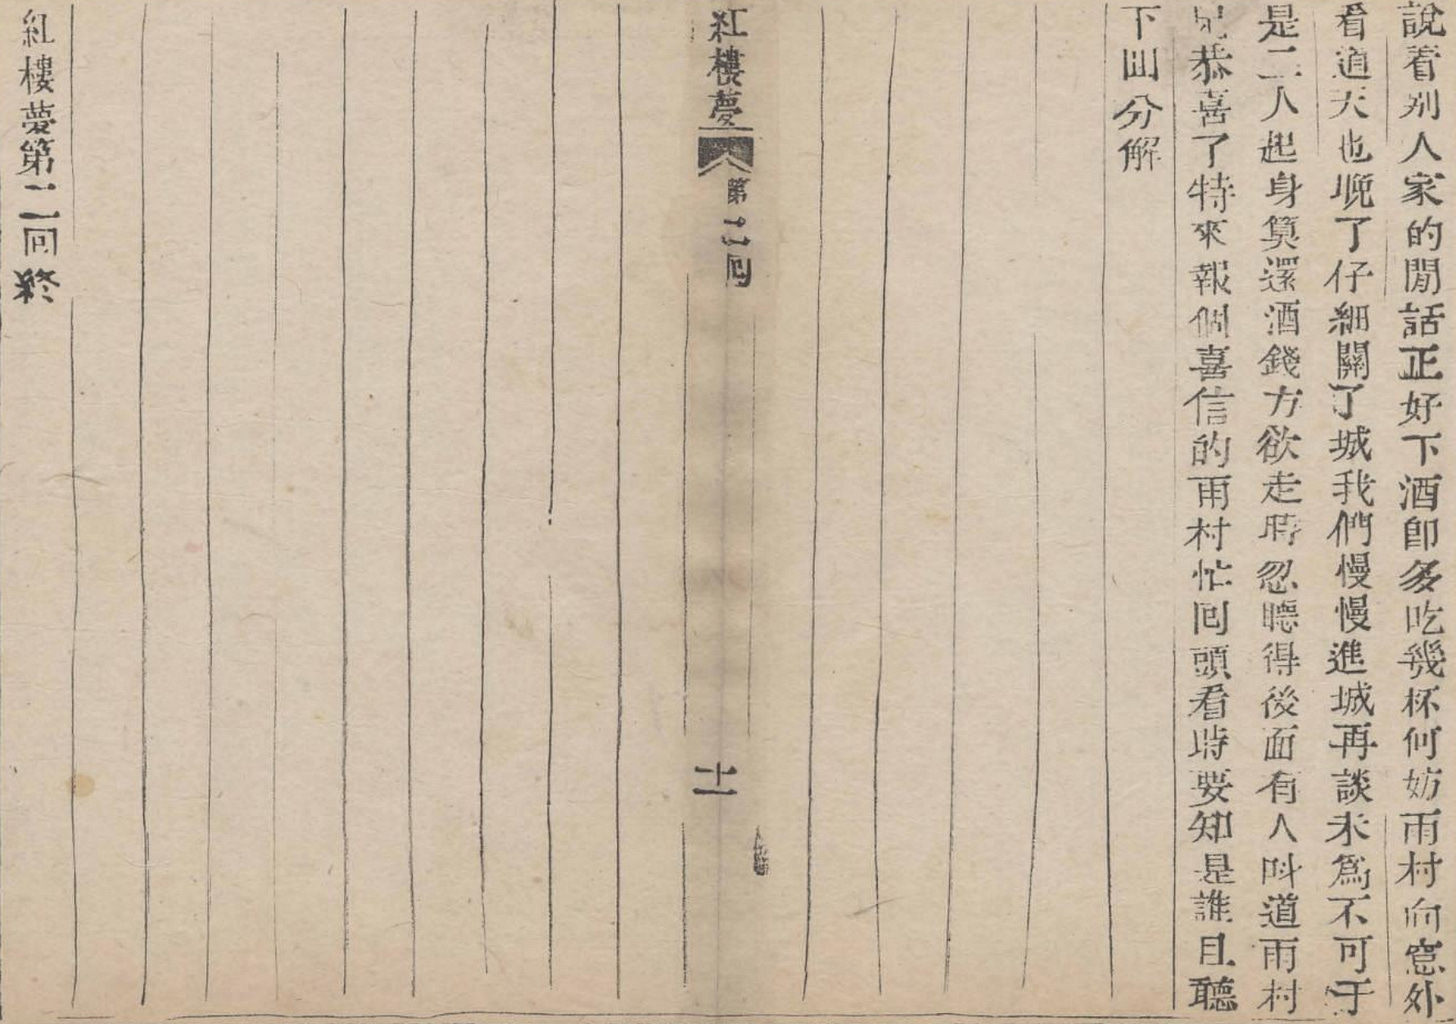 說着別人家的閒話正好下酒卽多吃幾杯何妨雨村向窓外
看道天也晚了仔細關了城我們慢慢進城再談未爲不可于
是二人起身算還酒錢方欲走時忽聽得後面有人叫道雨村
兄恭喜了特來報個喜信的雨村忙囘頭看時要知是誰且聽
下囘分解
紅樓夢
第二囘
十一
紅樓夢第二回終